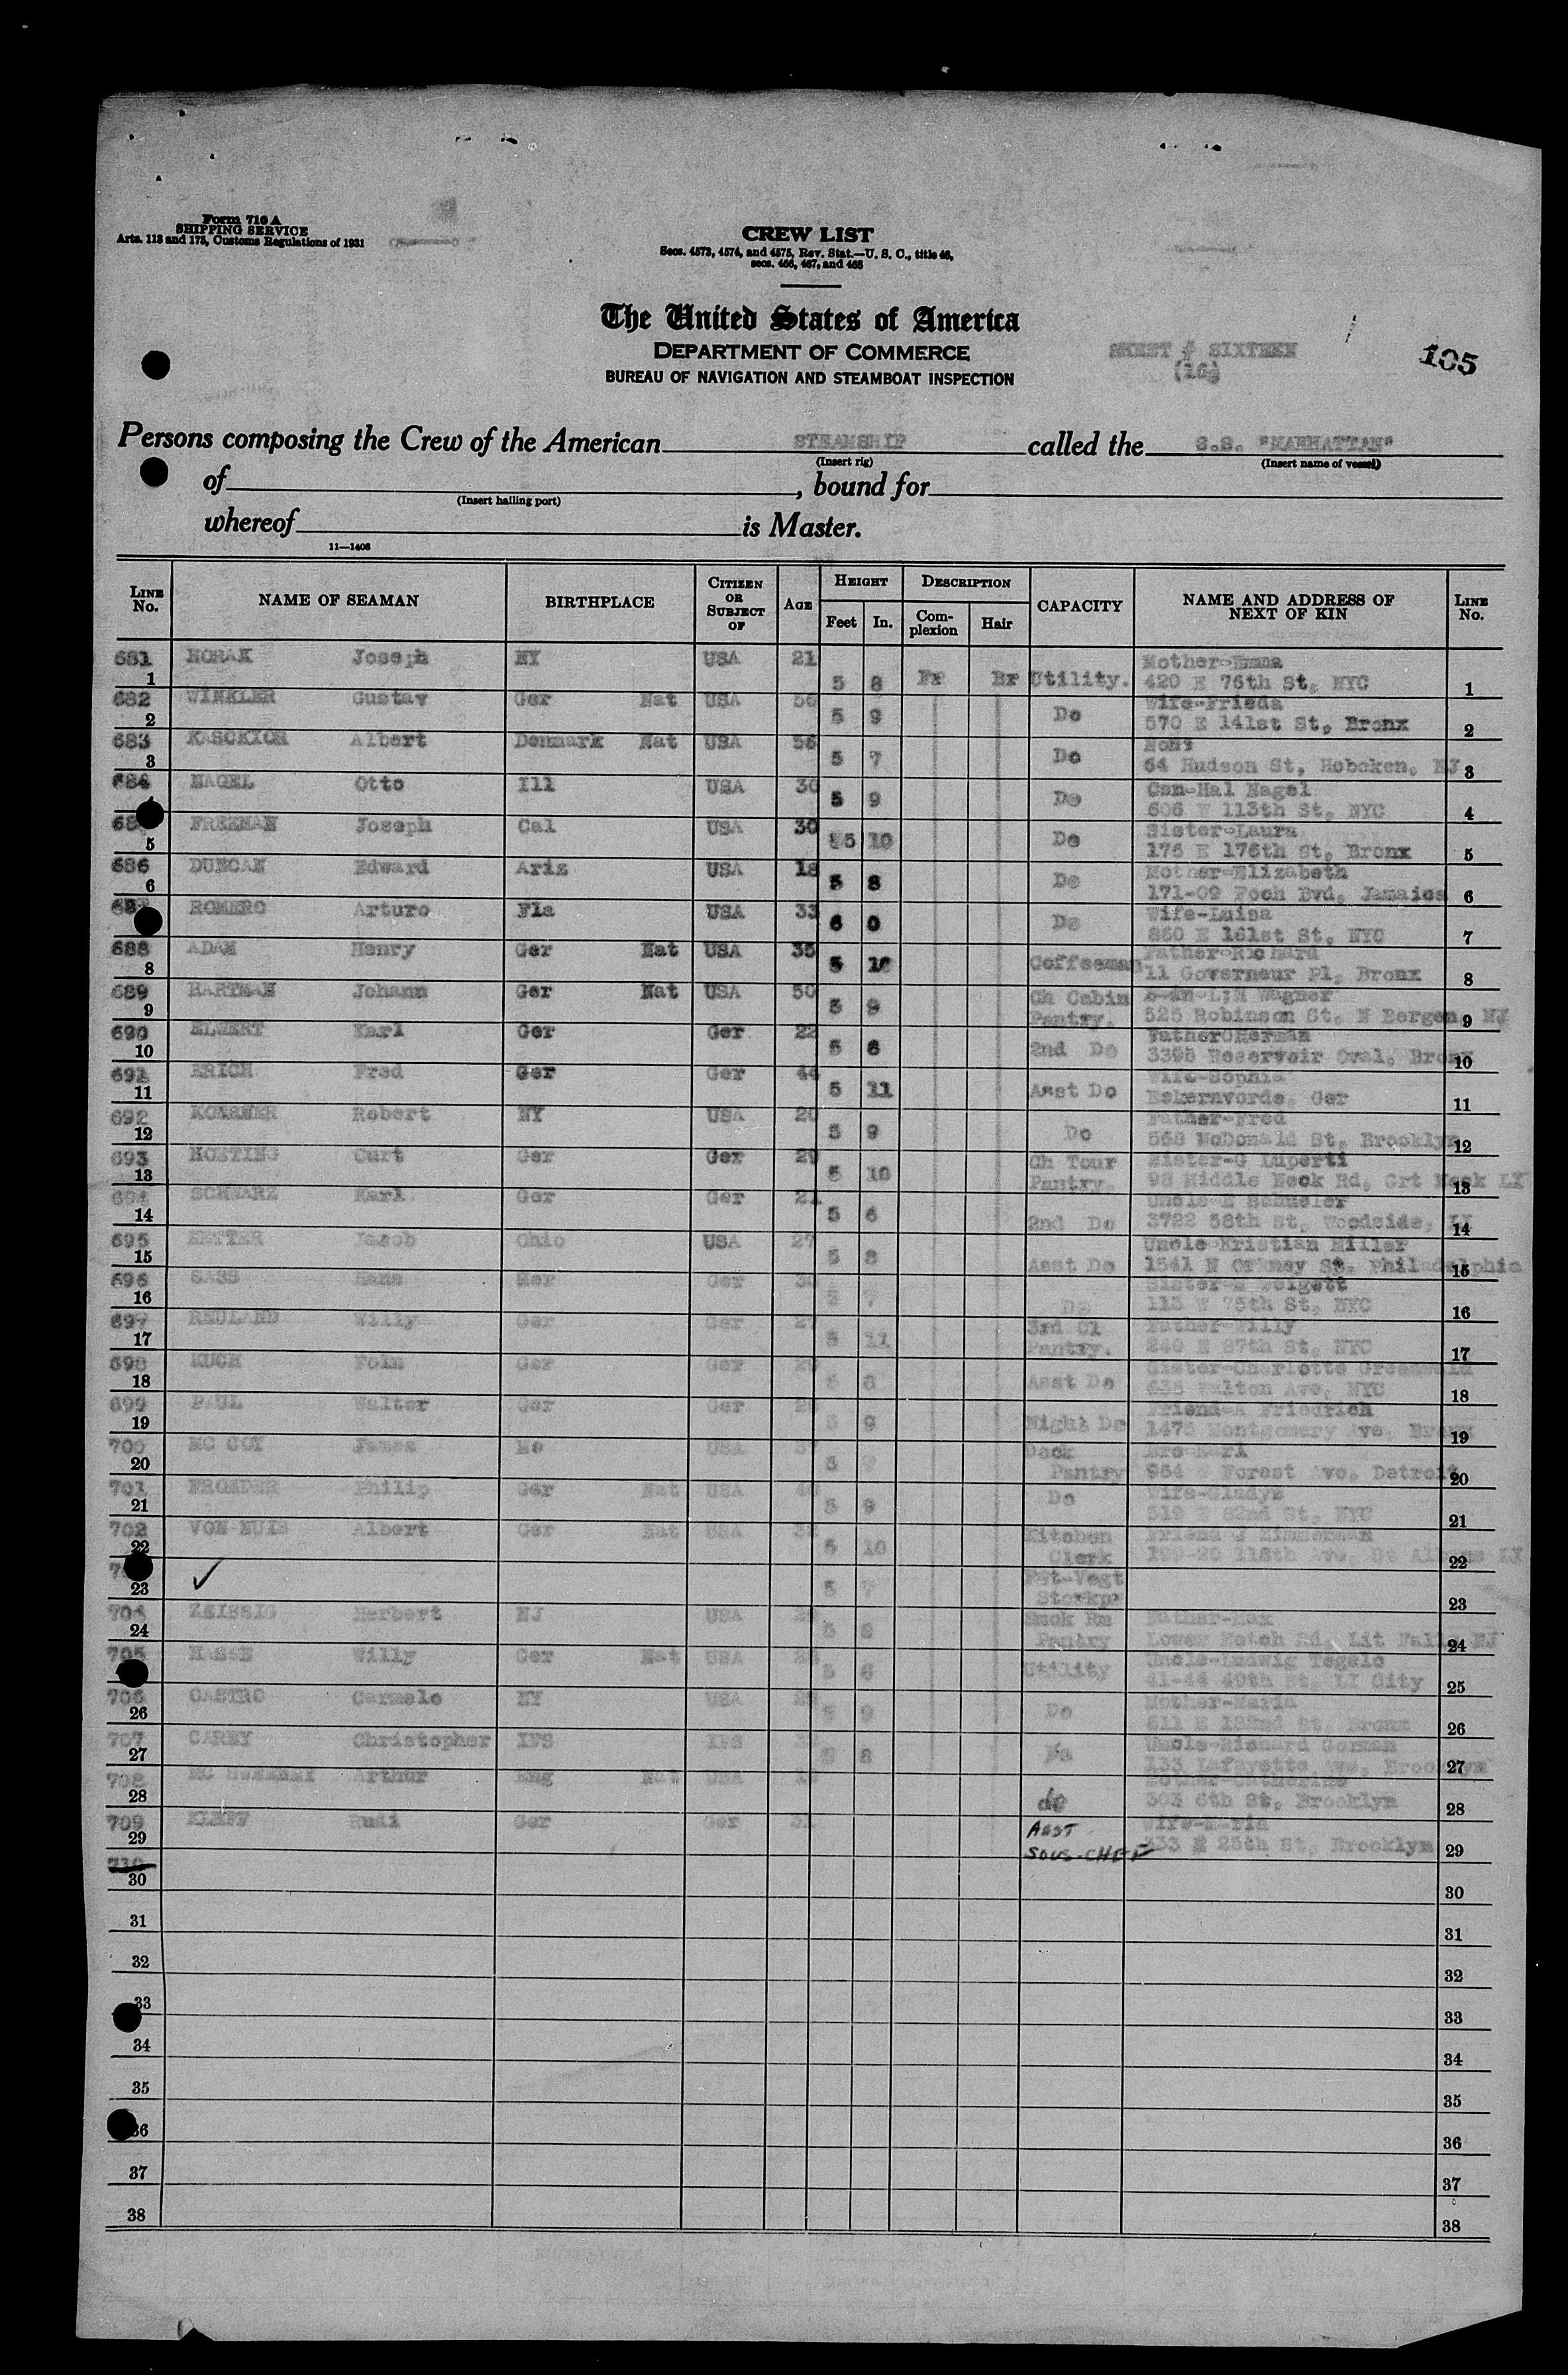 Form 710 A
SHIPPING SERVICE
Arts. 113 and 175, Customs Regulations of 1931
CREW LIST
Secs. 4573, 4574, and 4575, Rev. Stat.—U. S. C., title 46,
secs. 466, 467, and 468
The United States of America
DEPARTMENT OF COMMERCE
BUREAU OF NAVIGATION AND STEAMBOAT INSPECTION
SHEET # SIXTEEN
(16)
105
Persons composing the Crew of the American STEAMSHIP called the S.S. "MANHATTAN"
(Insert rig) (Insert name of vessel)
of , bound for
(Insert hailing port)
whereof is Master.
11—1408
LINE No. NAME OF SEAMAN BIRTHPLACE CITIZEN OR SUBJECT OF AGE HEIGHT Feet In. DESCRIPTION Complexion Hair CAPACITY NAME AND ADDRESS OF NEXT OF KIN LINE No.
681 HORAK Joseph NY USA 21 Mother-Emma
1 5 8 Fr Br Utility. 420 E 76th St, NYC 1
682 WINKLER Gustav Ger Nat USA 56 Wife-Frieda
2 5 9 Do 570 E 141st St, Bronx 2
683 Albert Denmark Nat USA 56
3 5 7 Do 64 Hudson St, Hoboken, NJ 3
684 NAGEL Otto Ill USA 30 Hal Nagel
5 9 Do 606 W 113th St, NYC 4
FREEMAN Joseph Cal USA 30 Sister-Laura
5 5 10 Do 176 E 176th St, Bronx 5
686 DUNCAN Edward Ariz USA 18 Mother-Elizabeth
6 5 8 Do 171-09 Foch Bvd, Jamaica 6
687 ROMERO Arturo Fla USA 33 Wife-Luisa
6 0 Do 860 E 161st St, NYC 7
688 ADAM Henry Ger Nat USA 35 Father-Richard
8 5 10 Coffeeman 11 Governeur Pl, Bronx 8
689 HARTMAN Johann Ger Nat USA 50 Ch Cabin Wagner
9 5 9 Pantry. 525 Robinson St, N Bergen, NJ 9
690 ELWERT Karl Ger Ger 22 Father Herman
10 5 8 2nd Do 3395 Reservoir Oval, Bronx 10
691 ERICH Fred Ger Ger 44 Wife-Sophia
11 5 11 Asst Do Eskernvorde, Ger 11
692 KOERNER Robert NY USA 20 Father-Fred
12 5 9 Do 568 McDonald St, Brooklyn 12
693 Curt Ger Ger 29 Ch Tour Sister-G Luperti
13 5 10 Pantry. 98 Middle Neck Rd, Grt Neck LI 13
694 SCHWARZ Karl Ger Ger 21 Uncle-E Schueler
14 5 6 2nd Do 3722 58th St, Woodside, LI 14
695 Jacob Ohio USA 27 Uncle-Kristian Miller
15 5 8 Asst Do 1541 N St, Philadelphia 15
696 SASS Hans Ger Ger 30
16 5 7 Do 113 W 75th St, NYC 16
697 REULAND Willy Ger Ger 27 3rd Cl Father-Willy
17 5 11 Pantry. 240 E 87th St, NYC 17
698 KUCH Ger Ger Sister-Charlotte
18 5 8 Asst Do 635 Walton Ave, NYC 18
699 PAUL Walter Ger Ger Friend-A Friedrich
19 5 9 Night Do 1475 Montgomery Ave, Bronx 19
700 MC COY James USA 37 Deck
20 5 Pantry 954 Forest Ave, Detroit 20
701 Philip Ger Nat USA Do Wife-Gladys
21 5 9 519 E 82nd St, NYC 21
702 VON NUIS Albert Ger Nat USA Kitchen Friend-J Zimmerman
22 5 10 Clerk 118th Ave, St Albans LI 22
✓
23 5 7 23
704 ZEISSIG Herbert NJ USA Smok Rm Father-Max
24 5 8 Pantry Lower Notch Rd, Lit Falls NJ 24
705 HASSE Willy Ger Nat USA Uncle-Ludwig
5 6 Utility 41-44 49th St, LI City 25
706 CASTRO Carmelo NY USA Mother-Maria
26 5 9 Do 611 E 182nd St, Bronx 26
707 CAREY Christopher IFS IFS Uncle-Richard Gorman
27 5 8 133 Lafayette Ave, Brooklyn 27
708 Arthur Eng Nat USA Mother-Catherine
28 do 303 6th St, Brooklyn 28
709 Rudi Ger Ger ASST Wife-Maria
29 SOUS-CHEF 333 E 25th St, Brooklyn 29
710
30 30
31 31
32 32
33 33
34 34
35 35
36 36
37 37
38 38